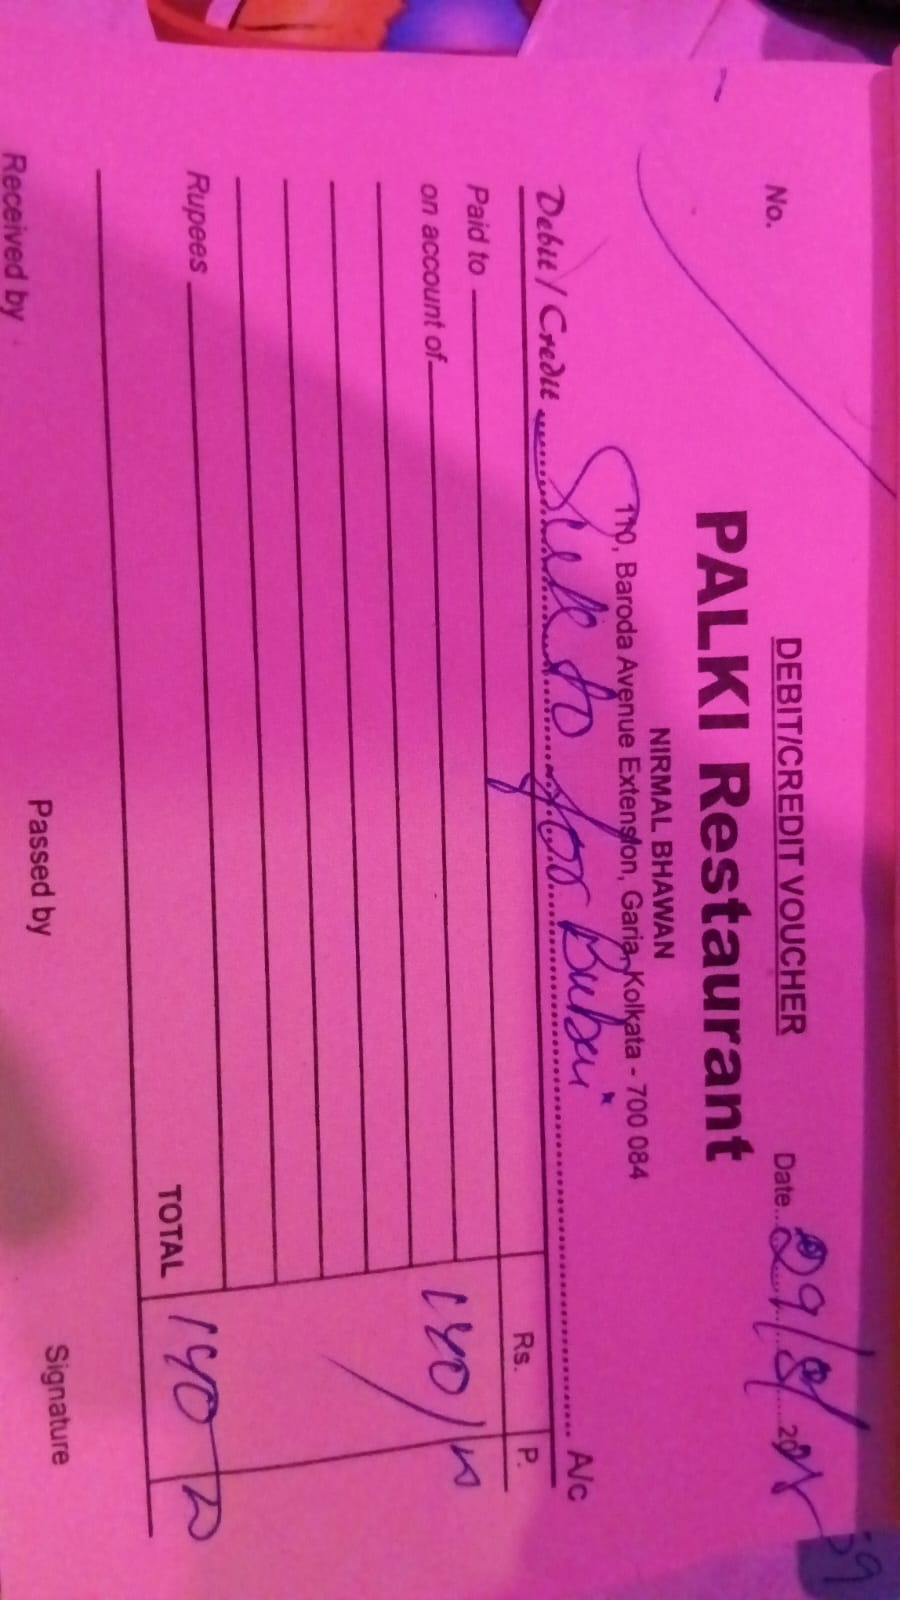 DEBIT/CREDIT VOUCHER
No.
Date 29/8/20
PALKI Restaurant
NIRMAL BHAWAN
110, Baroda Avenue Extension, Garia, Kolkata - 700 084
Debit / Credit to for A/c
Paid to
Rs. P.
on account of
140/
Rupees
TOTAL 140
Received by
Passed by
Signature
59